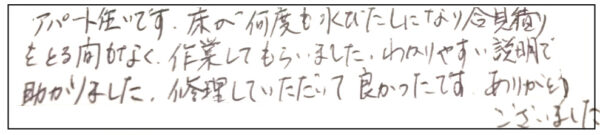 アパート住いです。床が何度も水びたしになり合見積り
をとる間もなく、作業してもらいました。わかりやすい説明で
助かりました。修理していただいて良かったです。ありがとう
ございました